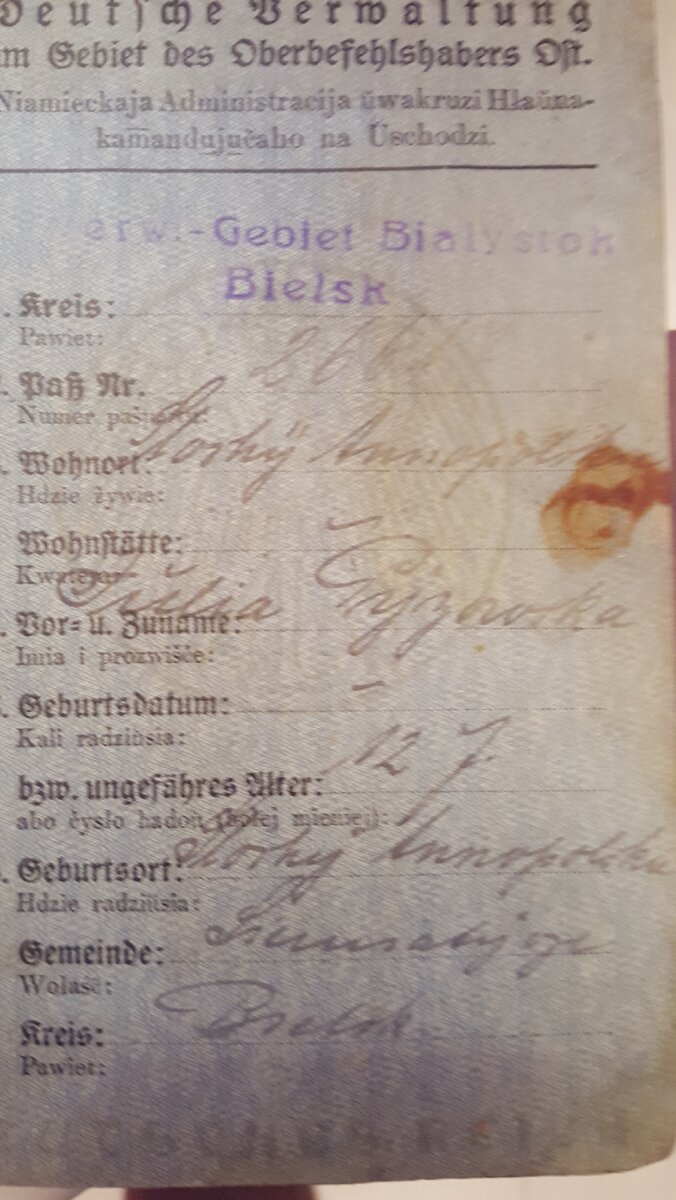 Deutsche Verwaltung
im Gebiet des Oberbefehlshabers Ost.
Niamieckaja Administracija ŭwakruzi Hłaŭna-
kamandujučaho na Ŭschodzi.
erw.-Gebiet Bialystok
Bielsk
Kreis:
Pawiet:
Paß Nr.
Numer pašpartu:
Wohnort:
Hdzie żywie:
Wohnstätte:
Kwatera:
Vor= u. Zuname:
Imia i prozwišče:
Geburtsdatum: –
Kali radziŭsia:
bzw. ungefähres Alter: 12 J.
abo čysło hadoŭ (bolej mieniej):
Geburtsort: Annopolska
Hdzie radziŭsia:
Gemeinde:
Wolaść:
Kreis: Bielsk
Pawiet: